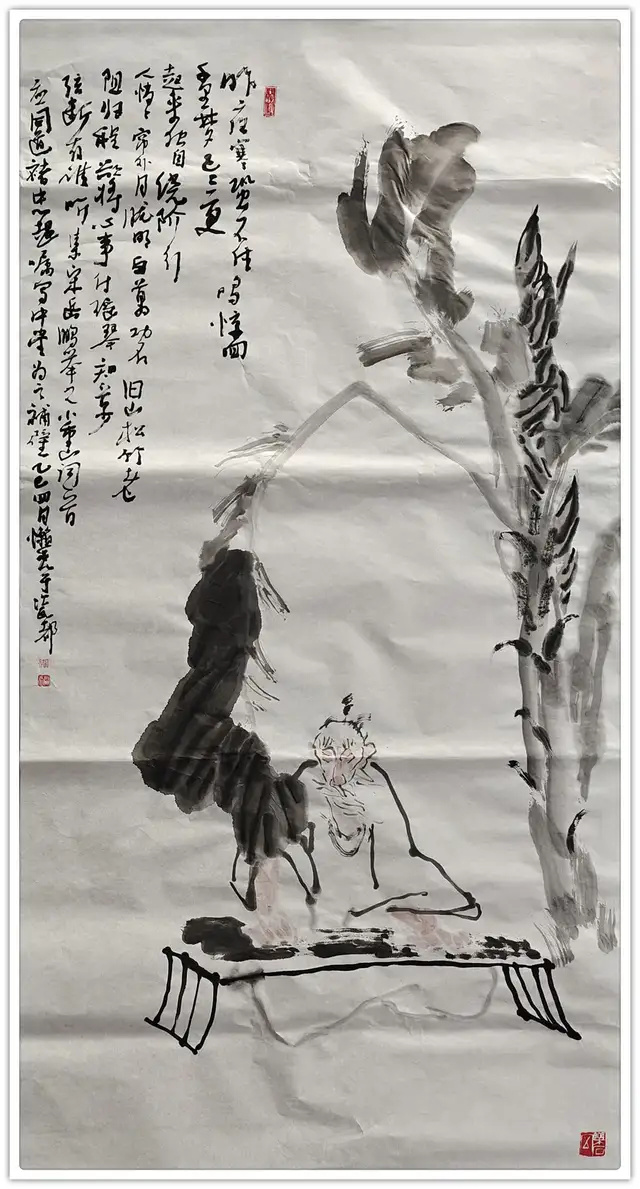 昨夜寒蛩不住鸣惊回
千里梦已三更
起来独自绕阶行
人悄悄帘外月胧明白为功名旧山松竹老
阻归程欲将心事付瑶琴知音少
弦断有谁听录宋岳鹏举之小重山词一首
应同道褚中嘱写中堂为之补壁乙巳四月于瓷都